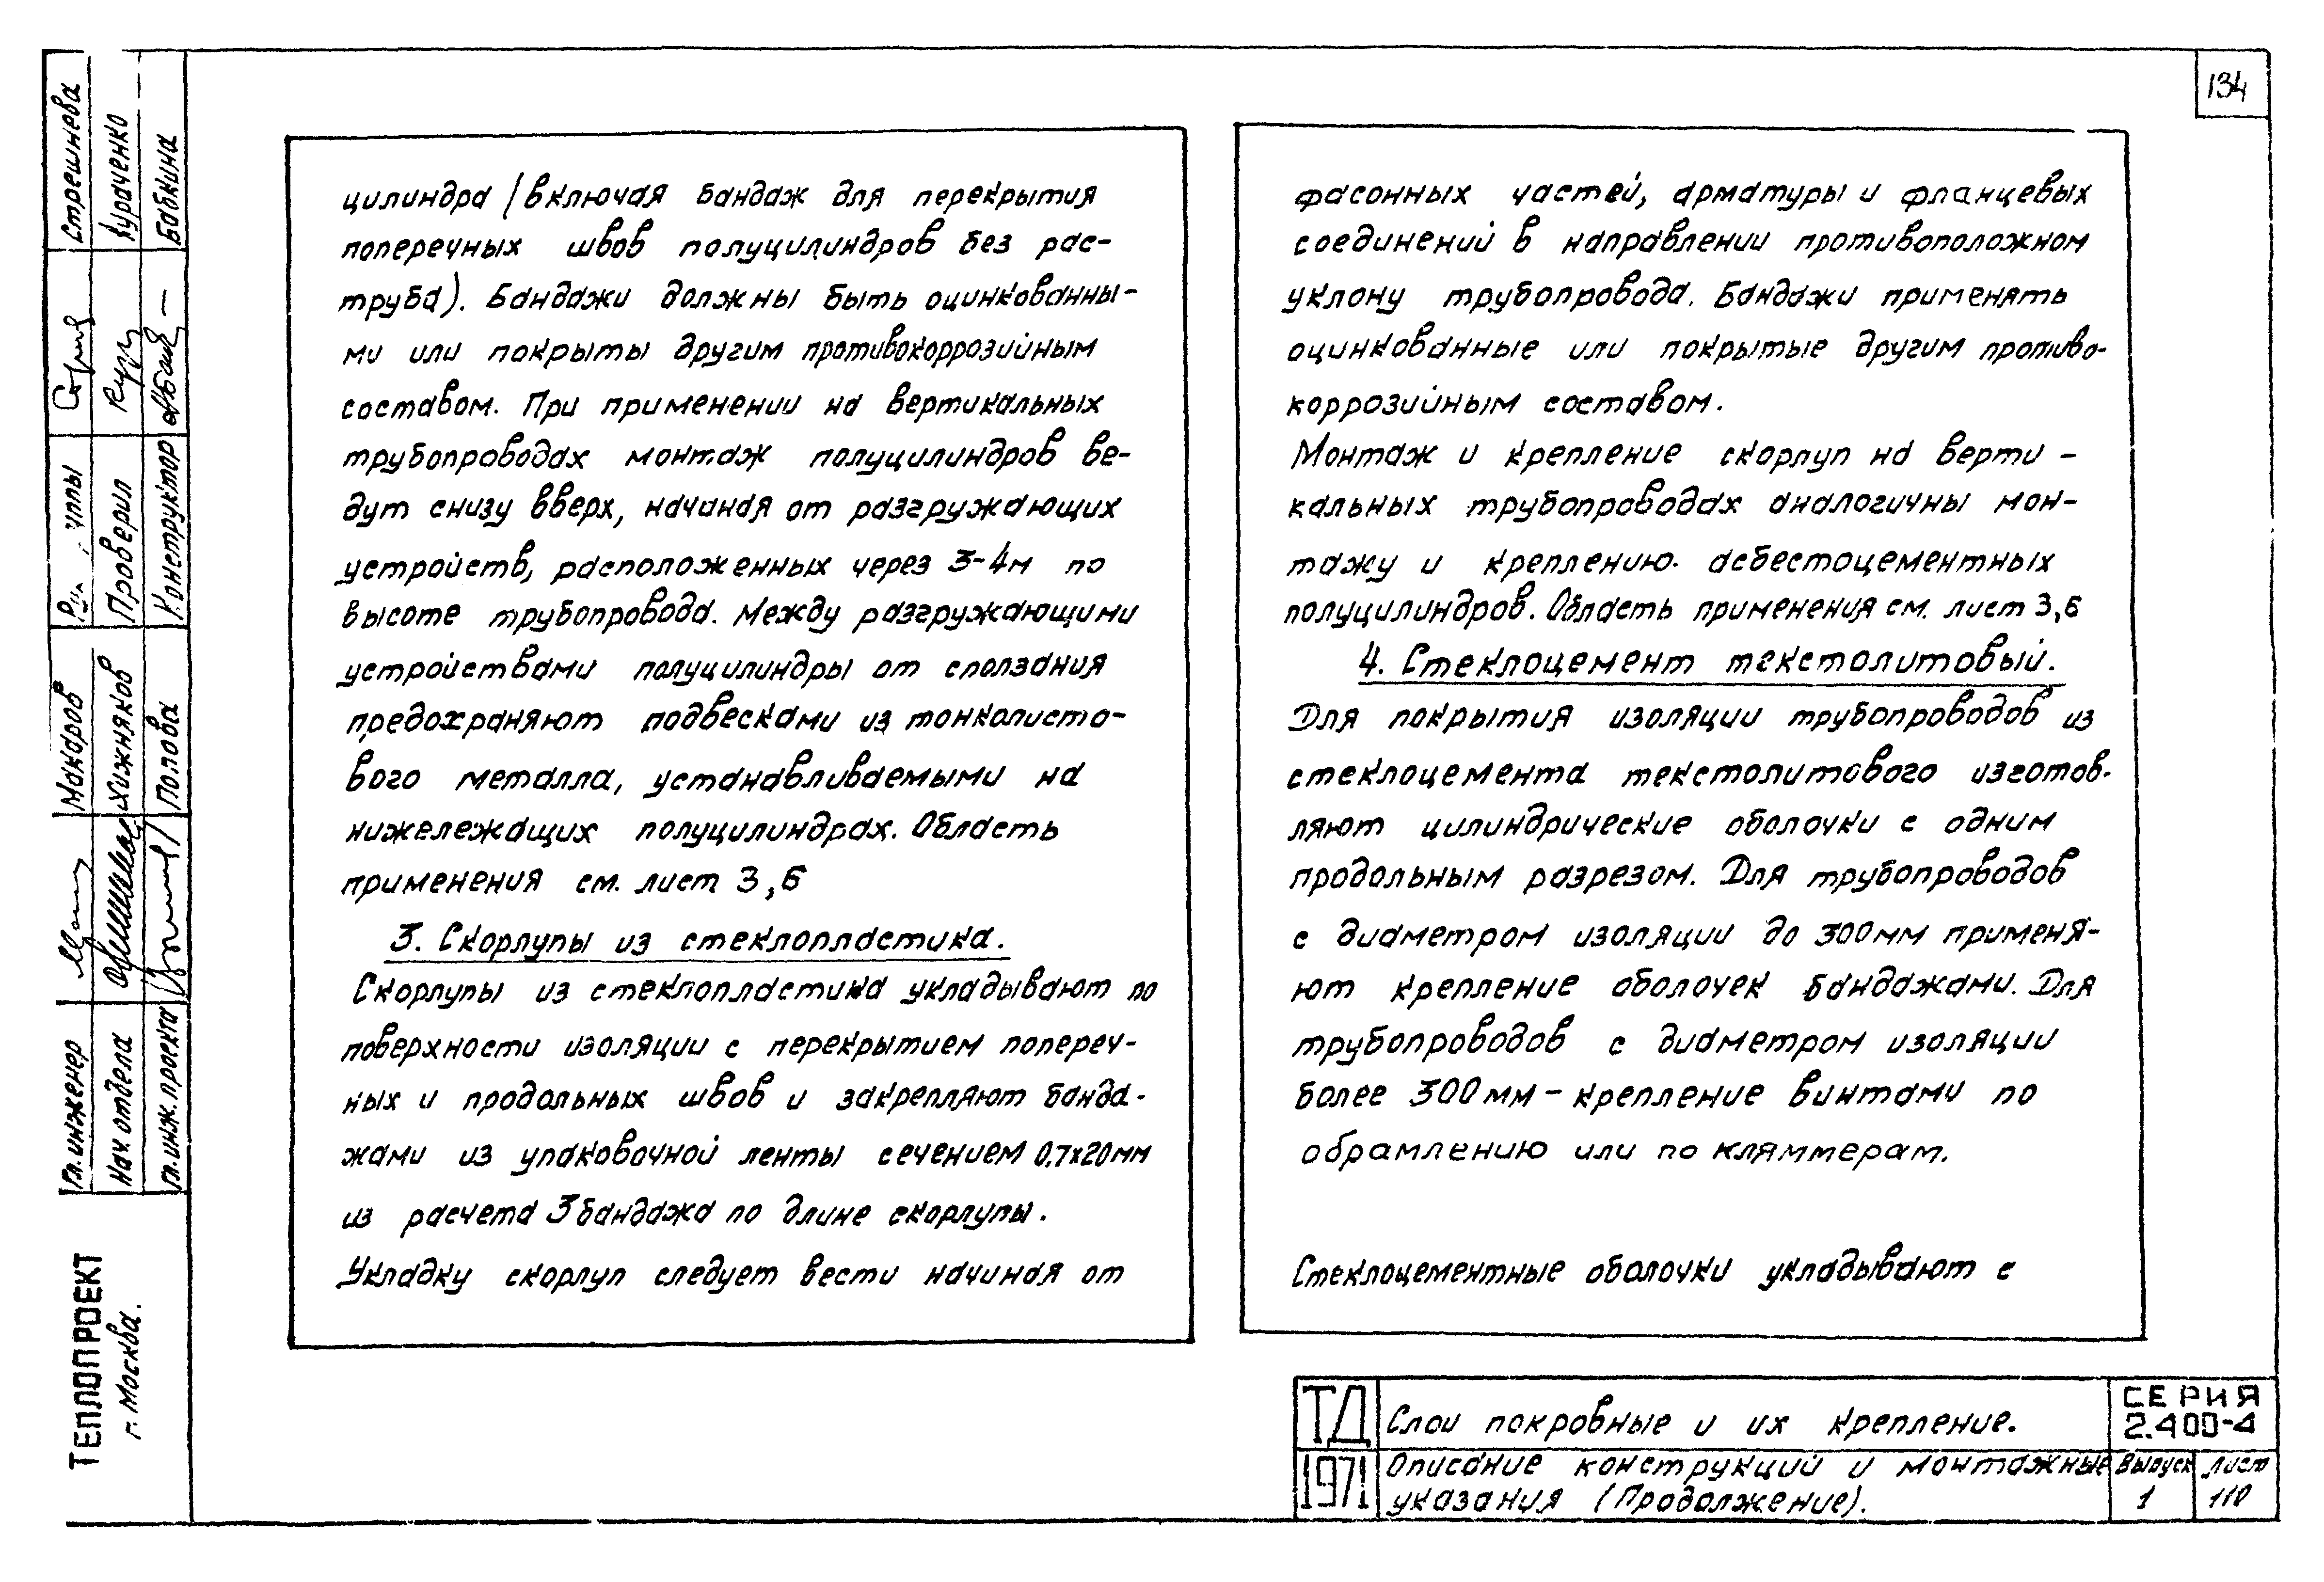 134
цилиндра (включая бандаж для перекрытия
поперечных швов полуцилиндров без рас-
труба). Бандажи должны быть оцинкованны-
ми или покрыты другим противокоррозийным
составом. При применении на вертикальных
трубопроводах монтаж полуцилиндров ве-
дут снизу вверх, начиная от разгружающих
устройств, расположенных через 3-4м по
высоте трубопровода. Между разгружающими
устройствами полуцилиндры от сползания
предохраняют подвесками из тонколисто-
вого металла, устанавливаемыми на
нижележащих полуцилиндрах. Область
применения см. лист 3,6
3. Скорлупы из стеклопластика.
Скорлупы из стеклопластика укладывают по
поверхности изоляции с перекрытием попереч-
ных и продольных швов и закрепляют банда-
жами из упаковочной ленты сечением 0,7х20мм
из расчета 3 бандажа по длине скорлупы.
Укладку скорлуп следует вести начиная от
фасонных частей, арматуры и фланцевых
соединений в направлении противоположном
уклону трубопровода. Бандажи применять
оцинкованные или покрытые другим противо-
коррозийным составом.
Монтаж и крепление скорлуп на верти-
кальных трубопроводах аналогичны мон-
тажу и креплению асбестоцементных
полуцилиндров. Область применения см. лист 3,6
4. Стеклоцемент текстолитовый.
Для покрытия изоляции трубопроводов из
стеклоцемента текстолитового изготов-
ляют цилиндрические оболочки с одним
продольным разрезом. Для трубопроводов
с диаметром изоляции до 300мм применя-
ют крепление оболочек бандажами. Для
трубопроводов с диаметром изоляции
более 300мм - крепление винтами по
обрамлению или по кляммерам.
Стеклоцементные оболочки укладывают с
ТД
1971
Слои покровные и их крепление.
Описание конструкций и монтажные
указания (Продолжение).
СЕРИЯ
2.400-4
Выпуск
1
лист
118
Гл. инженер Макаров Стрешнева
Нач. отдела Хижняков Проверил Кураченко
Гл. инж. проекта Попова Конструктор Бабкина
ТЕПЛОПРОЕКТ
г. Москва.